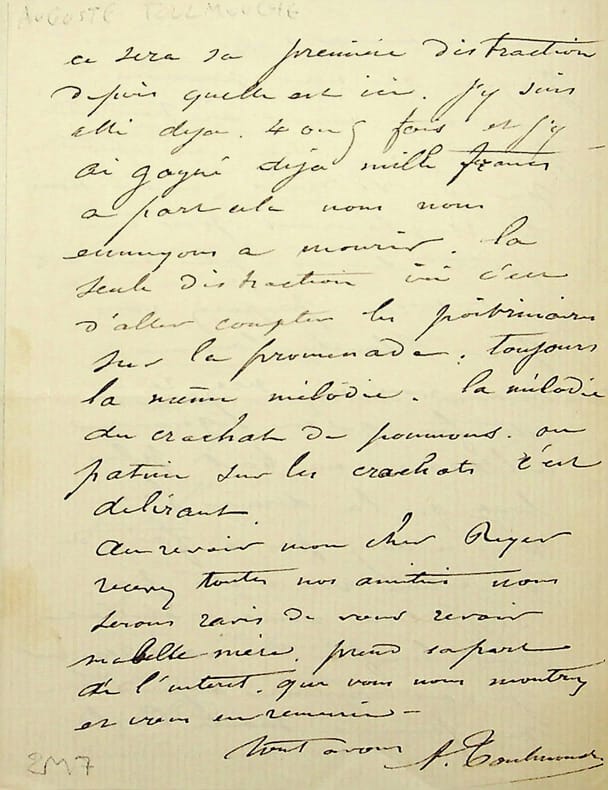 AUGUSTE TOULMOUCHE
ce sera sa première distraction
depuis quelle est ici. j'y suis
allé deja. 4 ou 5 fois et j'y
ai gagné deja mille francs
a part cela nous nous
ennuyons a mourir. la
seule distraction ici c'est
d'aller compter les poitrinaires
sur la promenade. toujours
la même mélodie. la mélodie
du crachat de poumons. on
patine sur les crachats c'est
délirant
au revoir mon cher Reyer
recevez toutes nos amitiés nous
serons ravis de vous revoir
ma belle mère. prend sa part
de l'interet. que vous nous montrez
et vous en remercie –
tout a vous A. Toulmouche
2M7